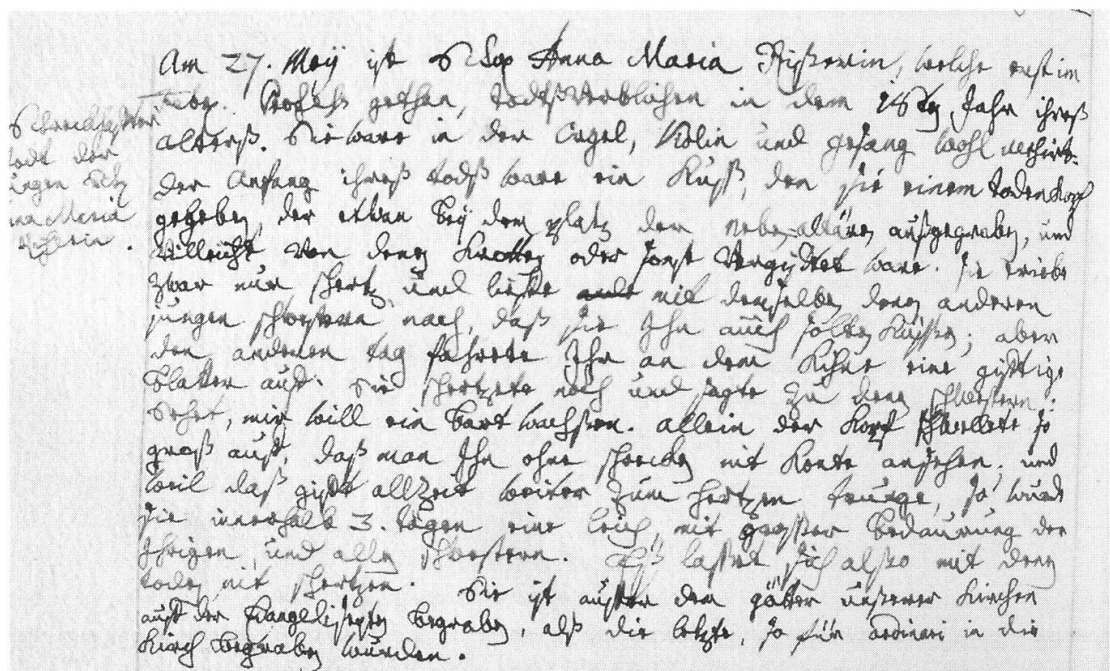 Am 27. Meÿ ist Anna Maria welche erst im
Profess gethan, todtß verblichen in dem Jahr ihreß
Schreckhafter
alterß. Sie ware in der Orgel, Violin und gesang wohl
todt der
der Anfang ihreß todß ware ein Kuß, den sie einem todenkopf
Maria
gegeben, der etwan beÿ dem platz der neben altären außgegraben, und
villeicht von denen Krotten oder sonst vergifftet ware. Sie triebe
zwar nur schertz und mit demselben denen anderen
jungen schwestern nach, daß sie Ihn auch solten küssen; aber
den anderen tag fahrete Ihr an dem Kihne eine gifftige
blatter auf. Sie schertzete noch und sagte zu denen schwestern:
Sehet, mir will ein bart wachsen. allein der Kopf so
groß auf, daß man Ihn ohne schrecken nit konte ansehen, und
weil daß gifft allzeit weiter zum hertzen trunge, so wurd
sie innerhalb 3. tägen eine leich, mit grosser bedaurung der
Ihrigen und allen schwestern. Eß lasset sich also mit dem
toden nit schertzen. Sie ist ausser dem gätter unserer Kirchen
auf der Evangelii seiten begraben, alß die letzte, so für ordinari in die
Kirch begraben wurden.